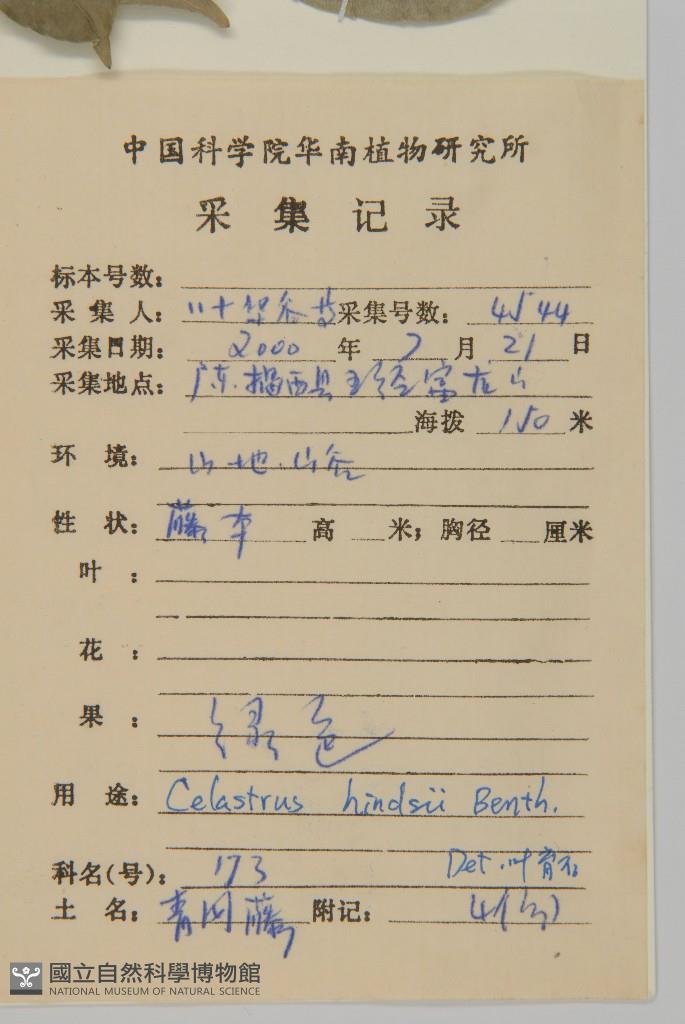 中国科学院华南植物研究所
采集记录
标本号数：
采集人： 采集号数： 4544
采集日期： 2000 年 7 月 21 日
采集地点： 广东揭西县 富 山
海拨 150 米
环境： 山地.山谷
性状： 藤本 高 米；胸径 厘米
叶：
花：
果： 绿色
用途： Celastrus hindsii Benth.
科名(号)： 173 Det. 叶育石
土名： 青冈藤 附记：
國立自然科學博物館
NATIONAL MUSEUM OF NATURAL SCIENCE